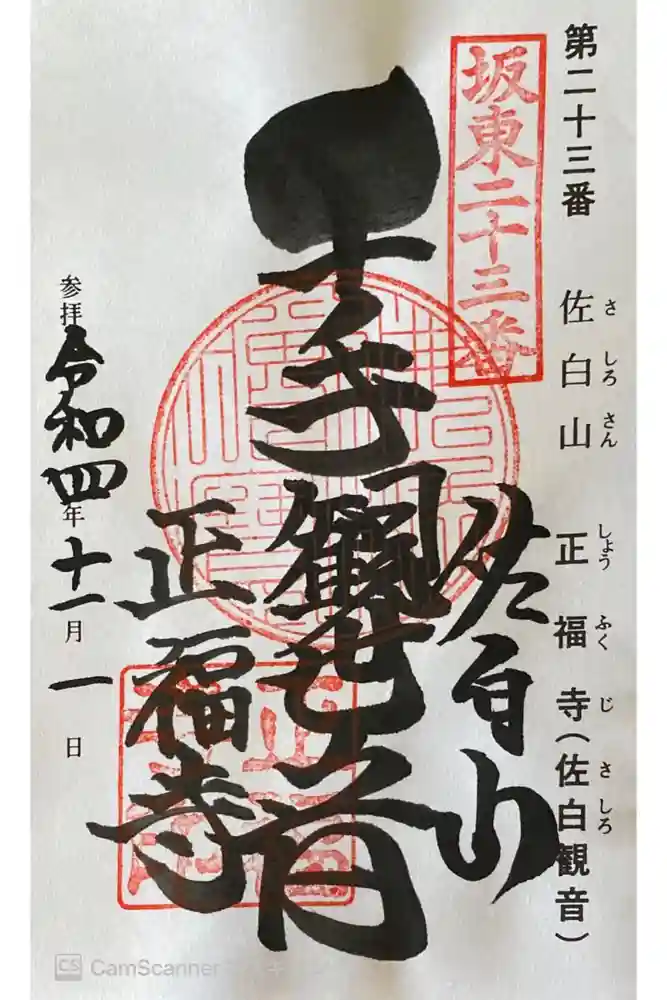 第二十三番 佐白山 正福寺(佐白観音)
さしろさん しょうふくじ さしろ
坂東二十三番
佐白山
千手観世音
正福寺
参拝 令和四年十一月一日
CS CamScanner